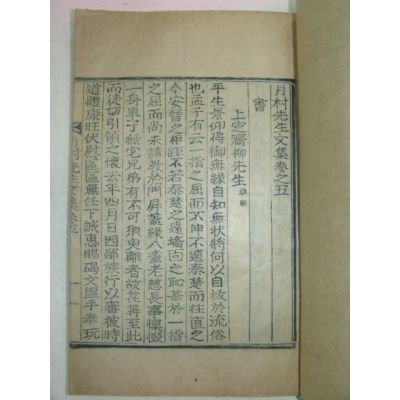 月村先生文集卷之五
書
上定齋柳先生 致明
平生景仰得御無緣自知無狀將何以自拔於流俗
也孟子有云一指之屈而不伸不遠秦楚而往直之
今安晉之相距不若秦楚之遠墻面之恥甚於一指
之屈而尚未請業於門屛蓋緣八耋老慈長事懷懷
一身單孑終宅兄弟有不可須臾離者故荏苒至此
而徒切引領之懷去年四月日因鄙族行以審彼時
道體康旺伏慰區區無任下誠惠賜碣文盥手奉玩
月村先生文集 卷五
一